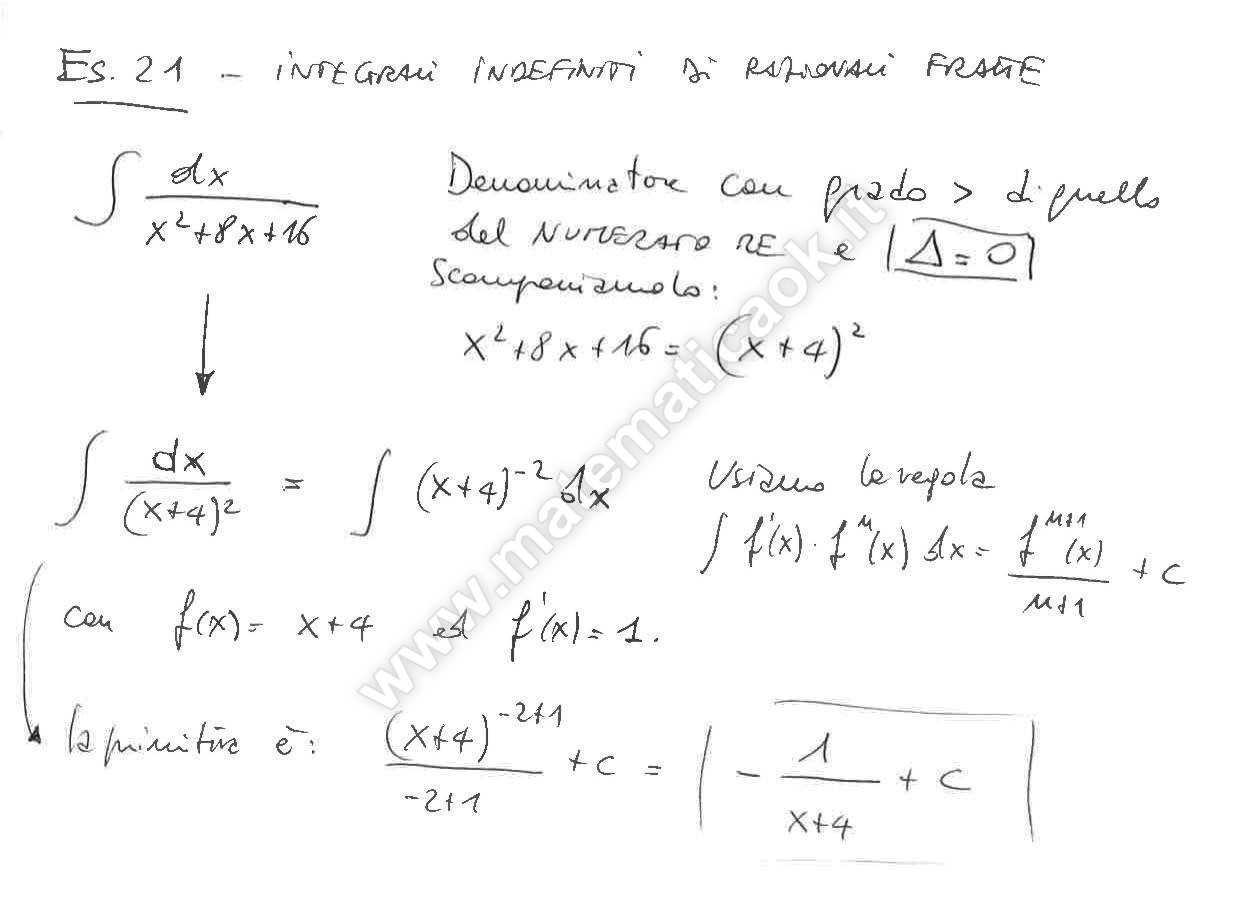 Es. 21 - INTEGRALI INDEFINITI DI RAZIONALI FRATTE
∫ dx / (x²+8x+16)
Denominatore con grado > di quello
del NUMERATORE e |Δ=0|
Scomponiamolo:
x²+8x+16 = (x+4)²
∫ dx / (x+4)² = ∫ (x+4)⁻² dx
Usiamo la regola
∫ f'(x)·fⁿ(x) dx = fⁿ⁺¹(x) / (n+1) + c
con f(x) = x+4 ed f'(x) = 1.
la primitiva è: (x+4)⁻²⁺¹ / (-2+1) + c = | - 1 / (x+4) + c |
www.matematicaok.it